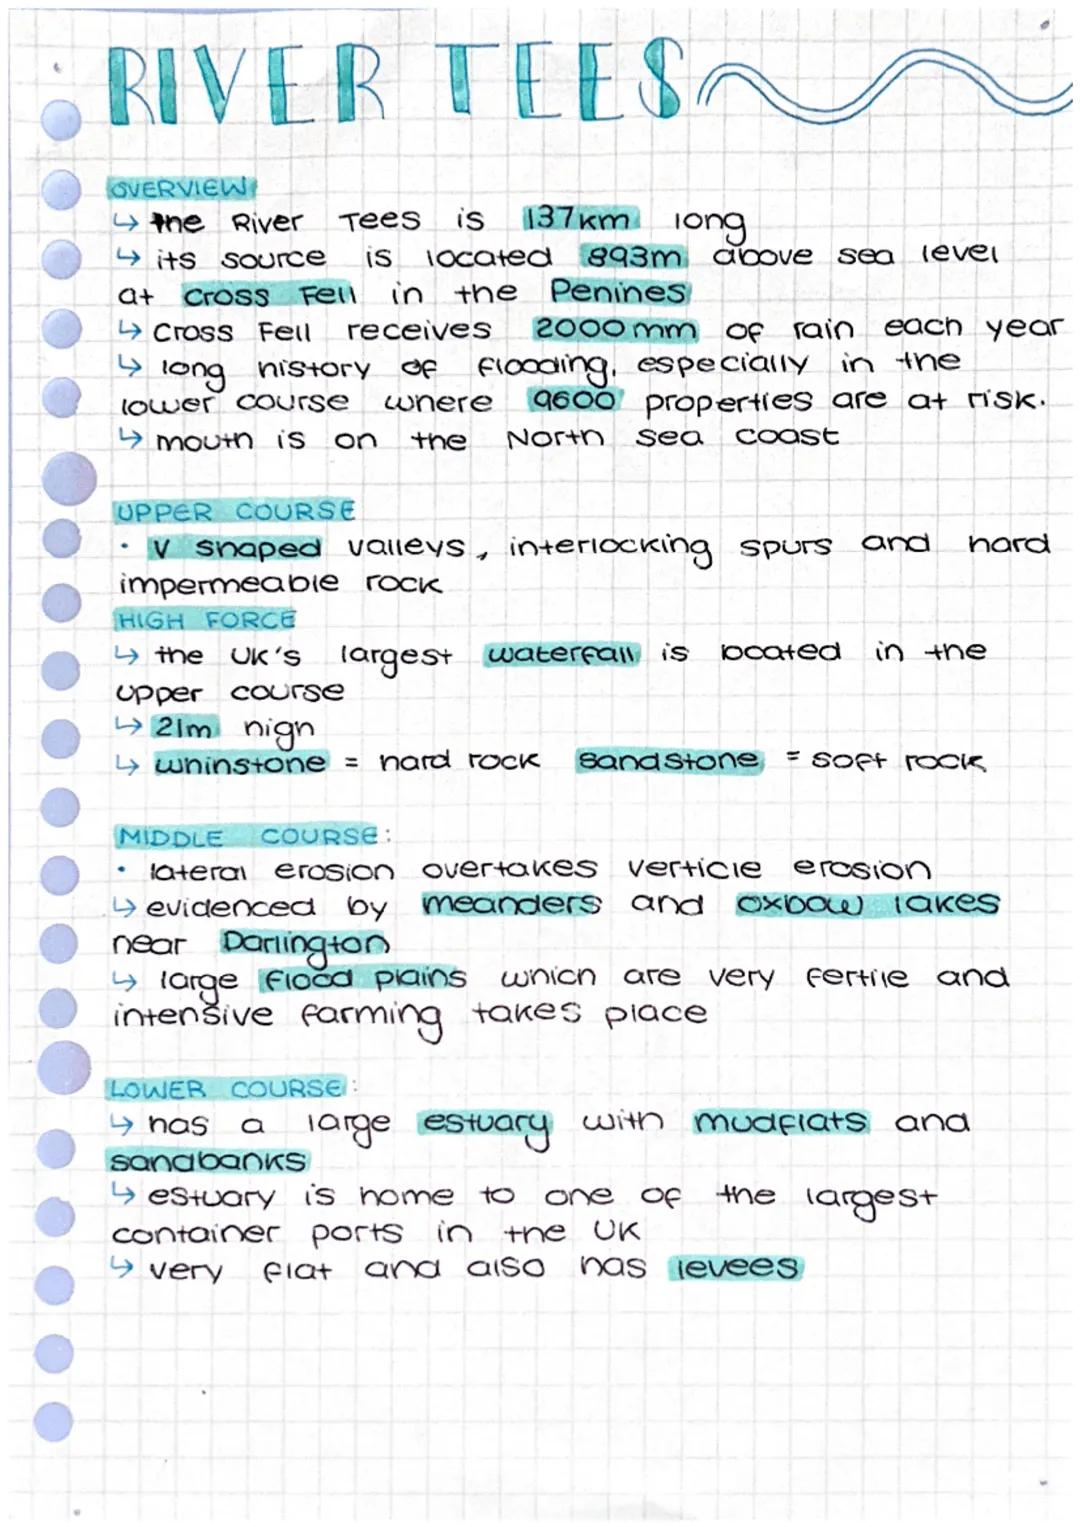 RIVER TEES
OVERVIEW
↳ the River Tees is 137km long
↳ its source is located 893m above sea level
at Cross Fell in the Penines
↳ Cross Fell receives 2000mm of rain each year
↳ long history of flooding, especially in the
lower course where 9600 properties are at risk.
↳ mouth is on the North sea coast
UPPER COURSE
· V shaped valleys, interlocking spurs and hard
impermeable rock
HIGH FORCE
↳ the UK's largest waterfall is located in the
upper course
↳ 21m high
↳ whinstone = hard rock sandstone = soft rock
MIDDLE COURSE:
· lateral erosion overtakes verticle erosion
↳ evidenced by meanders and oxbow lakes
near Darlington
↳ large flood plains which are very fertile and
intensive farming takes place
LOWER COURSE:
↳ has a large estuary with mudflats and
sandbanks
↳ estuary is home to one of the largest
container ports in the UK
↳ very flat and also has levees